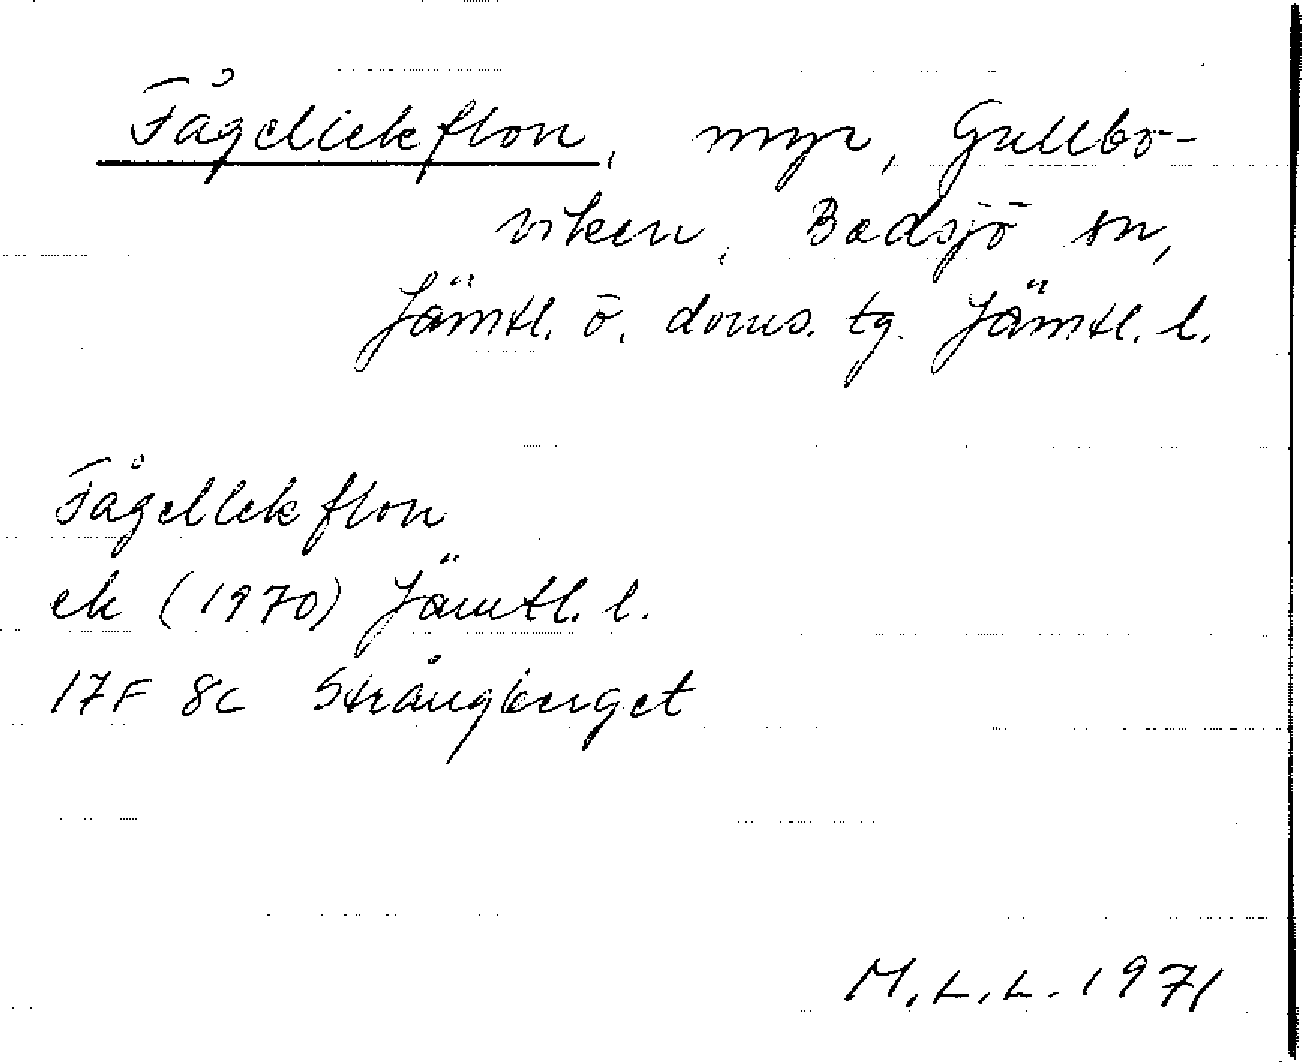 Fågellekflon, myr, Gullbo-
viken, Bodsjö sn,
Jämtl. ö. doms. tg. Jämtl. l.
Fågellekflon
ek (1970) Jämtl. l.
17F 8c Strångberget
M.L.L. 1971